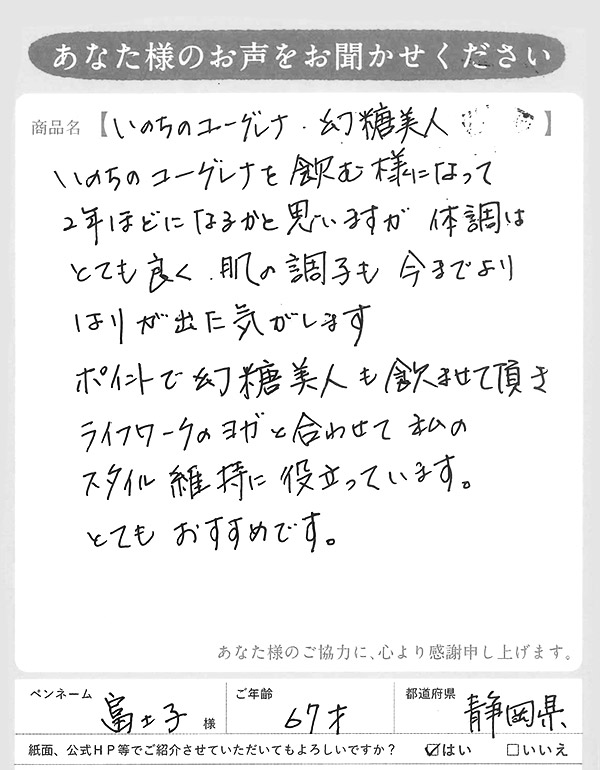 あなた様のお声をお聞かせください
商品名【いのちのユーグレナ・幻糖美人】
いのちのユーグレナを飲む様になって
2年ほどになるかと思いますが 体調は
とても良く、肌の調子も 今までより
はりが出た気がします
ポイントで幻糖美人も飲ませて頂き
ライフワークのヨガと合わせて 私の
スタイル維持に役立っています。
とても おすすめです。
あなた様のご協力に、心より感謝申し上げます。
ペンネーム 富士子 様 ご年齢 67才 都道府県 静岡県
紙面、公式HP等でご紹介させていただいてもよろしいですか? ☑はい □いいえ